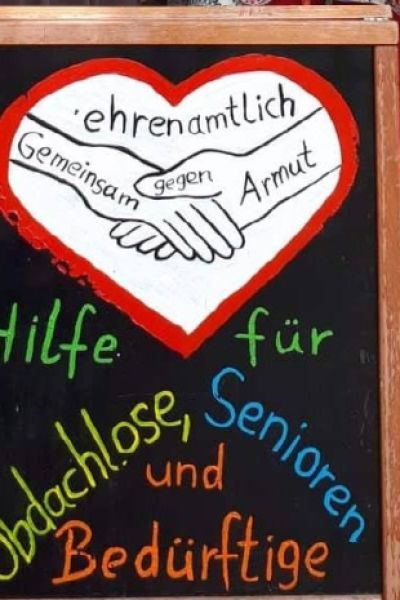 ehrenamtlich
Gemeinsam gegen Armut
Hilfe für
Obdachlose, Senioren
und
Bedürftige